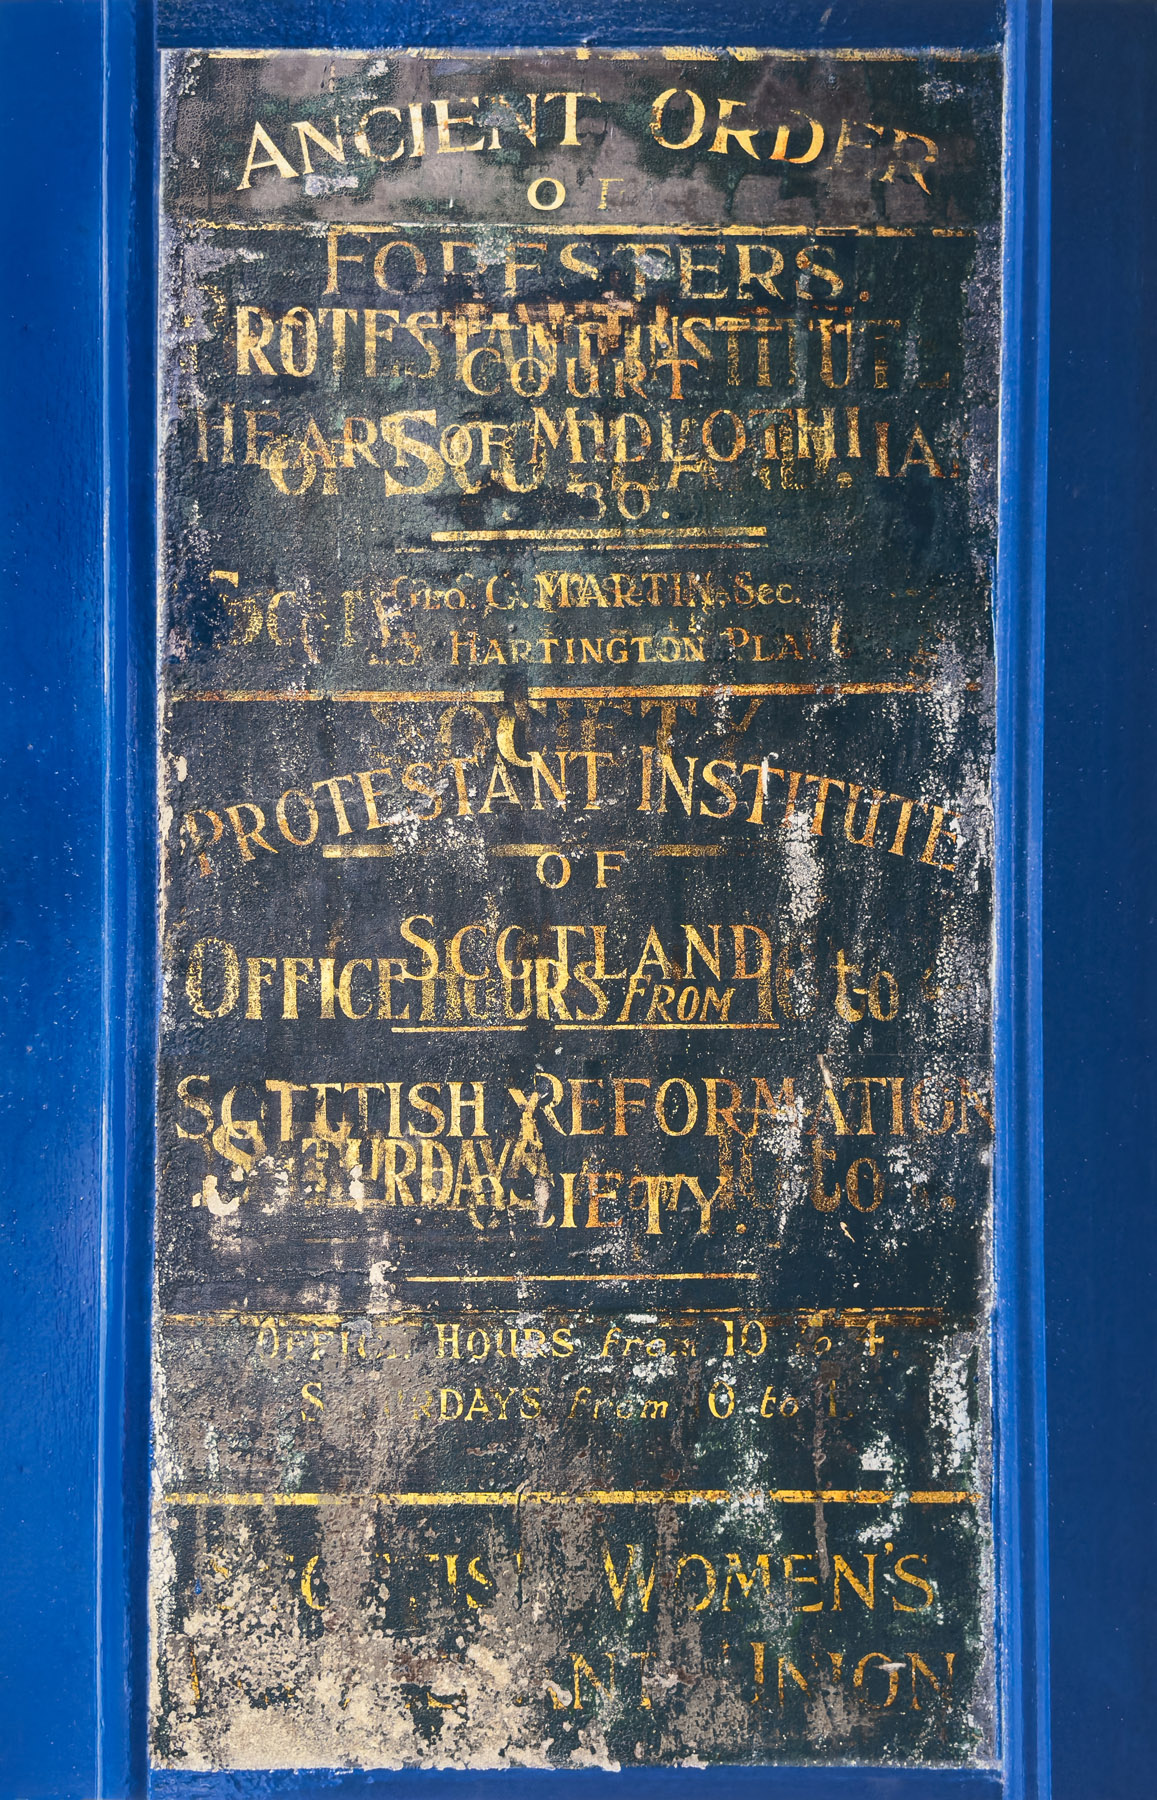 ANCIENT ORDER
OF
FORESTERS.
PROTESTANT INSTITUTE
COURT
HEART OF MIDLOTHIA
OF SCOTLAND.
36.
GEO. C. MARTIN, Sec.
HARTINGTON PLACE
SOCIETY
PROTESTANT INSTITUTE
OF
SCOTLAND
OFFICE HOURS FROM 10 to 4
SCOTTISH REFORMATION
SATURDAYS 10 to
SOCIETY.
OFFICE HOURS from 10 to 4.
SATURDAYS from 10 to 1
SCOTTISH WOMEN'S
PROTESTANT UNION